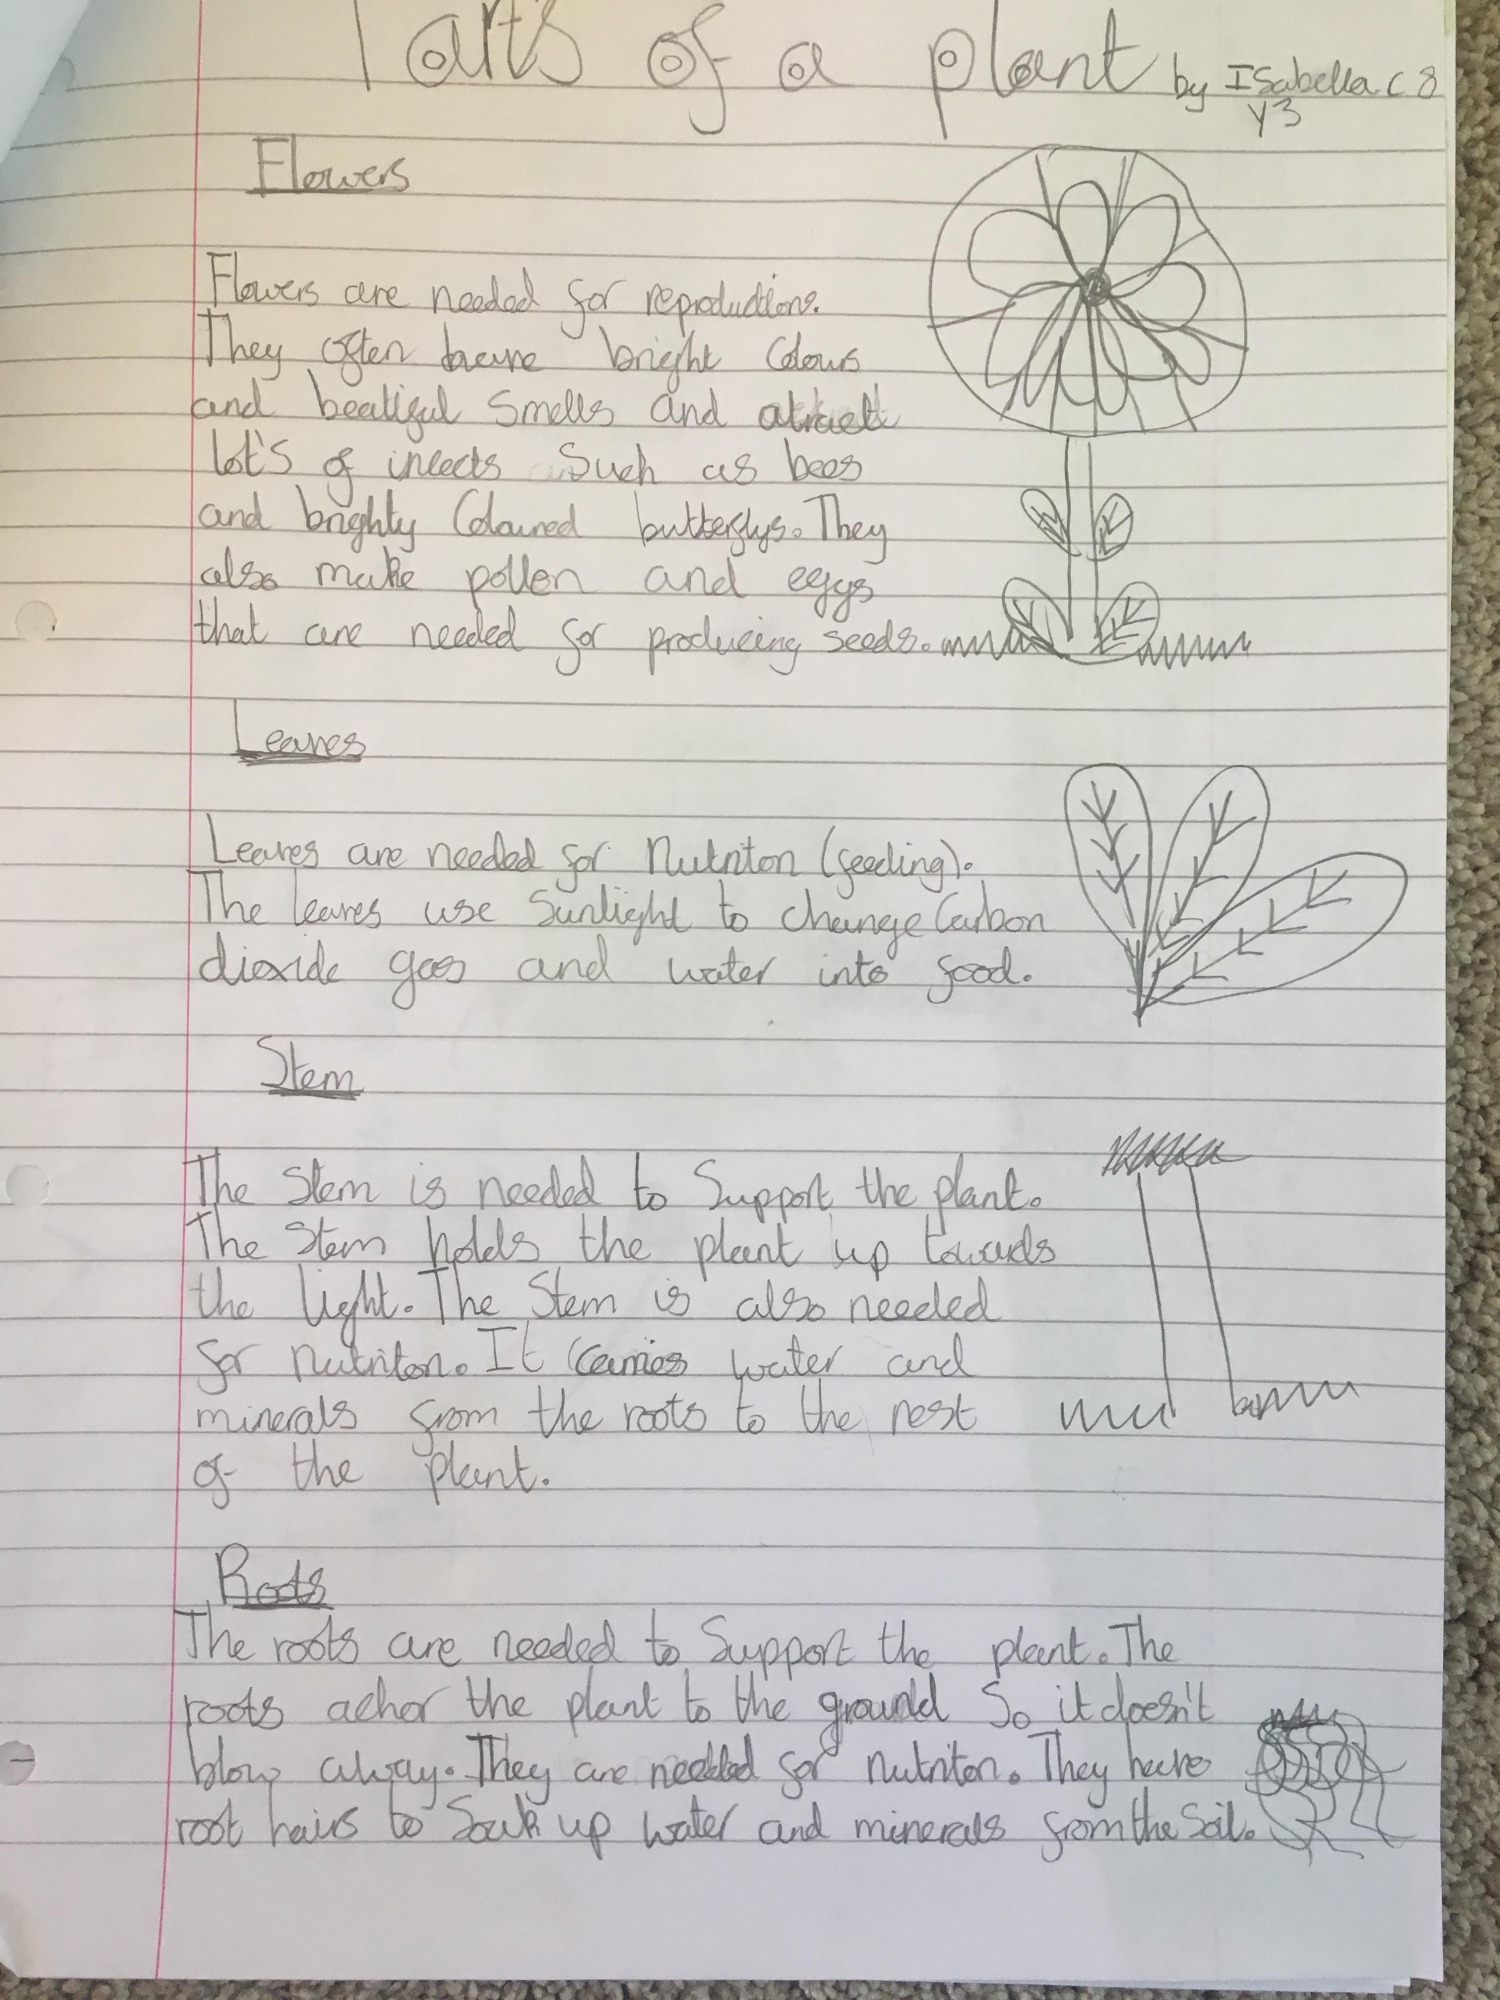 Parts of a plant by Isabella C 8
Y3
Flowers
Flowers are needed for reproductions.
They often have bright Colours
and beatiful Smells and atract
lot's of insects Such as bees
and brighty Coloured butterflys. They
also make pollen and eggs
that are needed for producing seeds.
Leaves
Leaves are needed for Nutriton (feeding).
The leaves use Sunlight to change Carbon
dioxide gas and water into food.
Stem
The Stem is needed to Support the plant.
The Stem holds the plant up towards
the light. The Stem is also needed
for nutriton. It Carries water and
minerals from the roots to the rest
of the plant.
Roots
The roots are needed to Support the plant. The
roots achor the plant to the ground So it doesn't
blow away. They are needed for nutriton. They have
root hairs to Soak up water and minerals from the Soil.